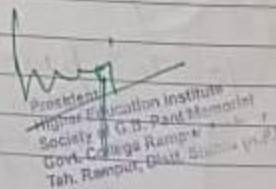 President
Higher Education Institute
Society G.B. Pant Memorial
Govt. College Rampur
Teh. Rampur, Distt.